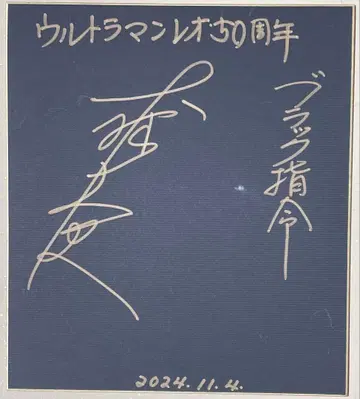 ウルトラマンレオ50周年
ブラック指令
2024.11.4.